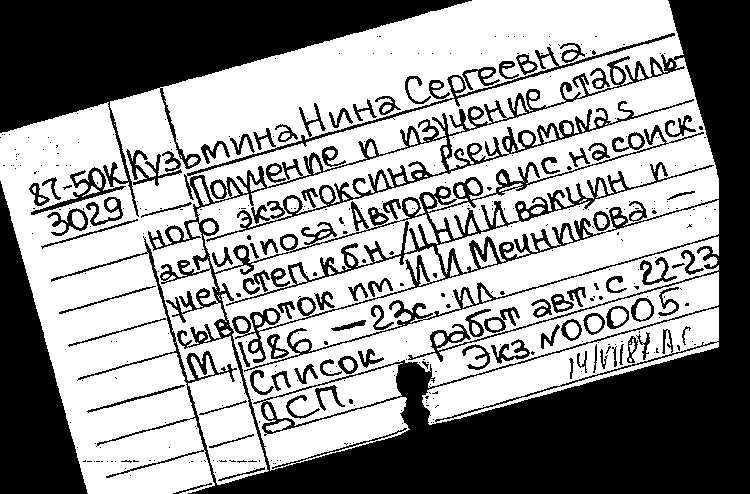 Кузьмина, Нина Сергеевна.
87-50к
3029
Получение и изучение стабиль-
ного экзотоксина Pseudomonas
aeruginosa: Автореф. дис. на соиск.
учен. степ. к.б.н. /ЦНИИ вакцин и
сывороток им. И.И. Мечникова. —
М., 1986. — 23с.: ил.
Список работ авт.: с. 22-23
Экз. N00005.
ДСП.